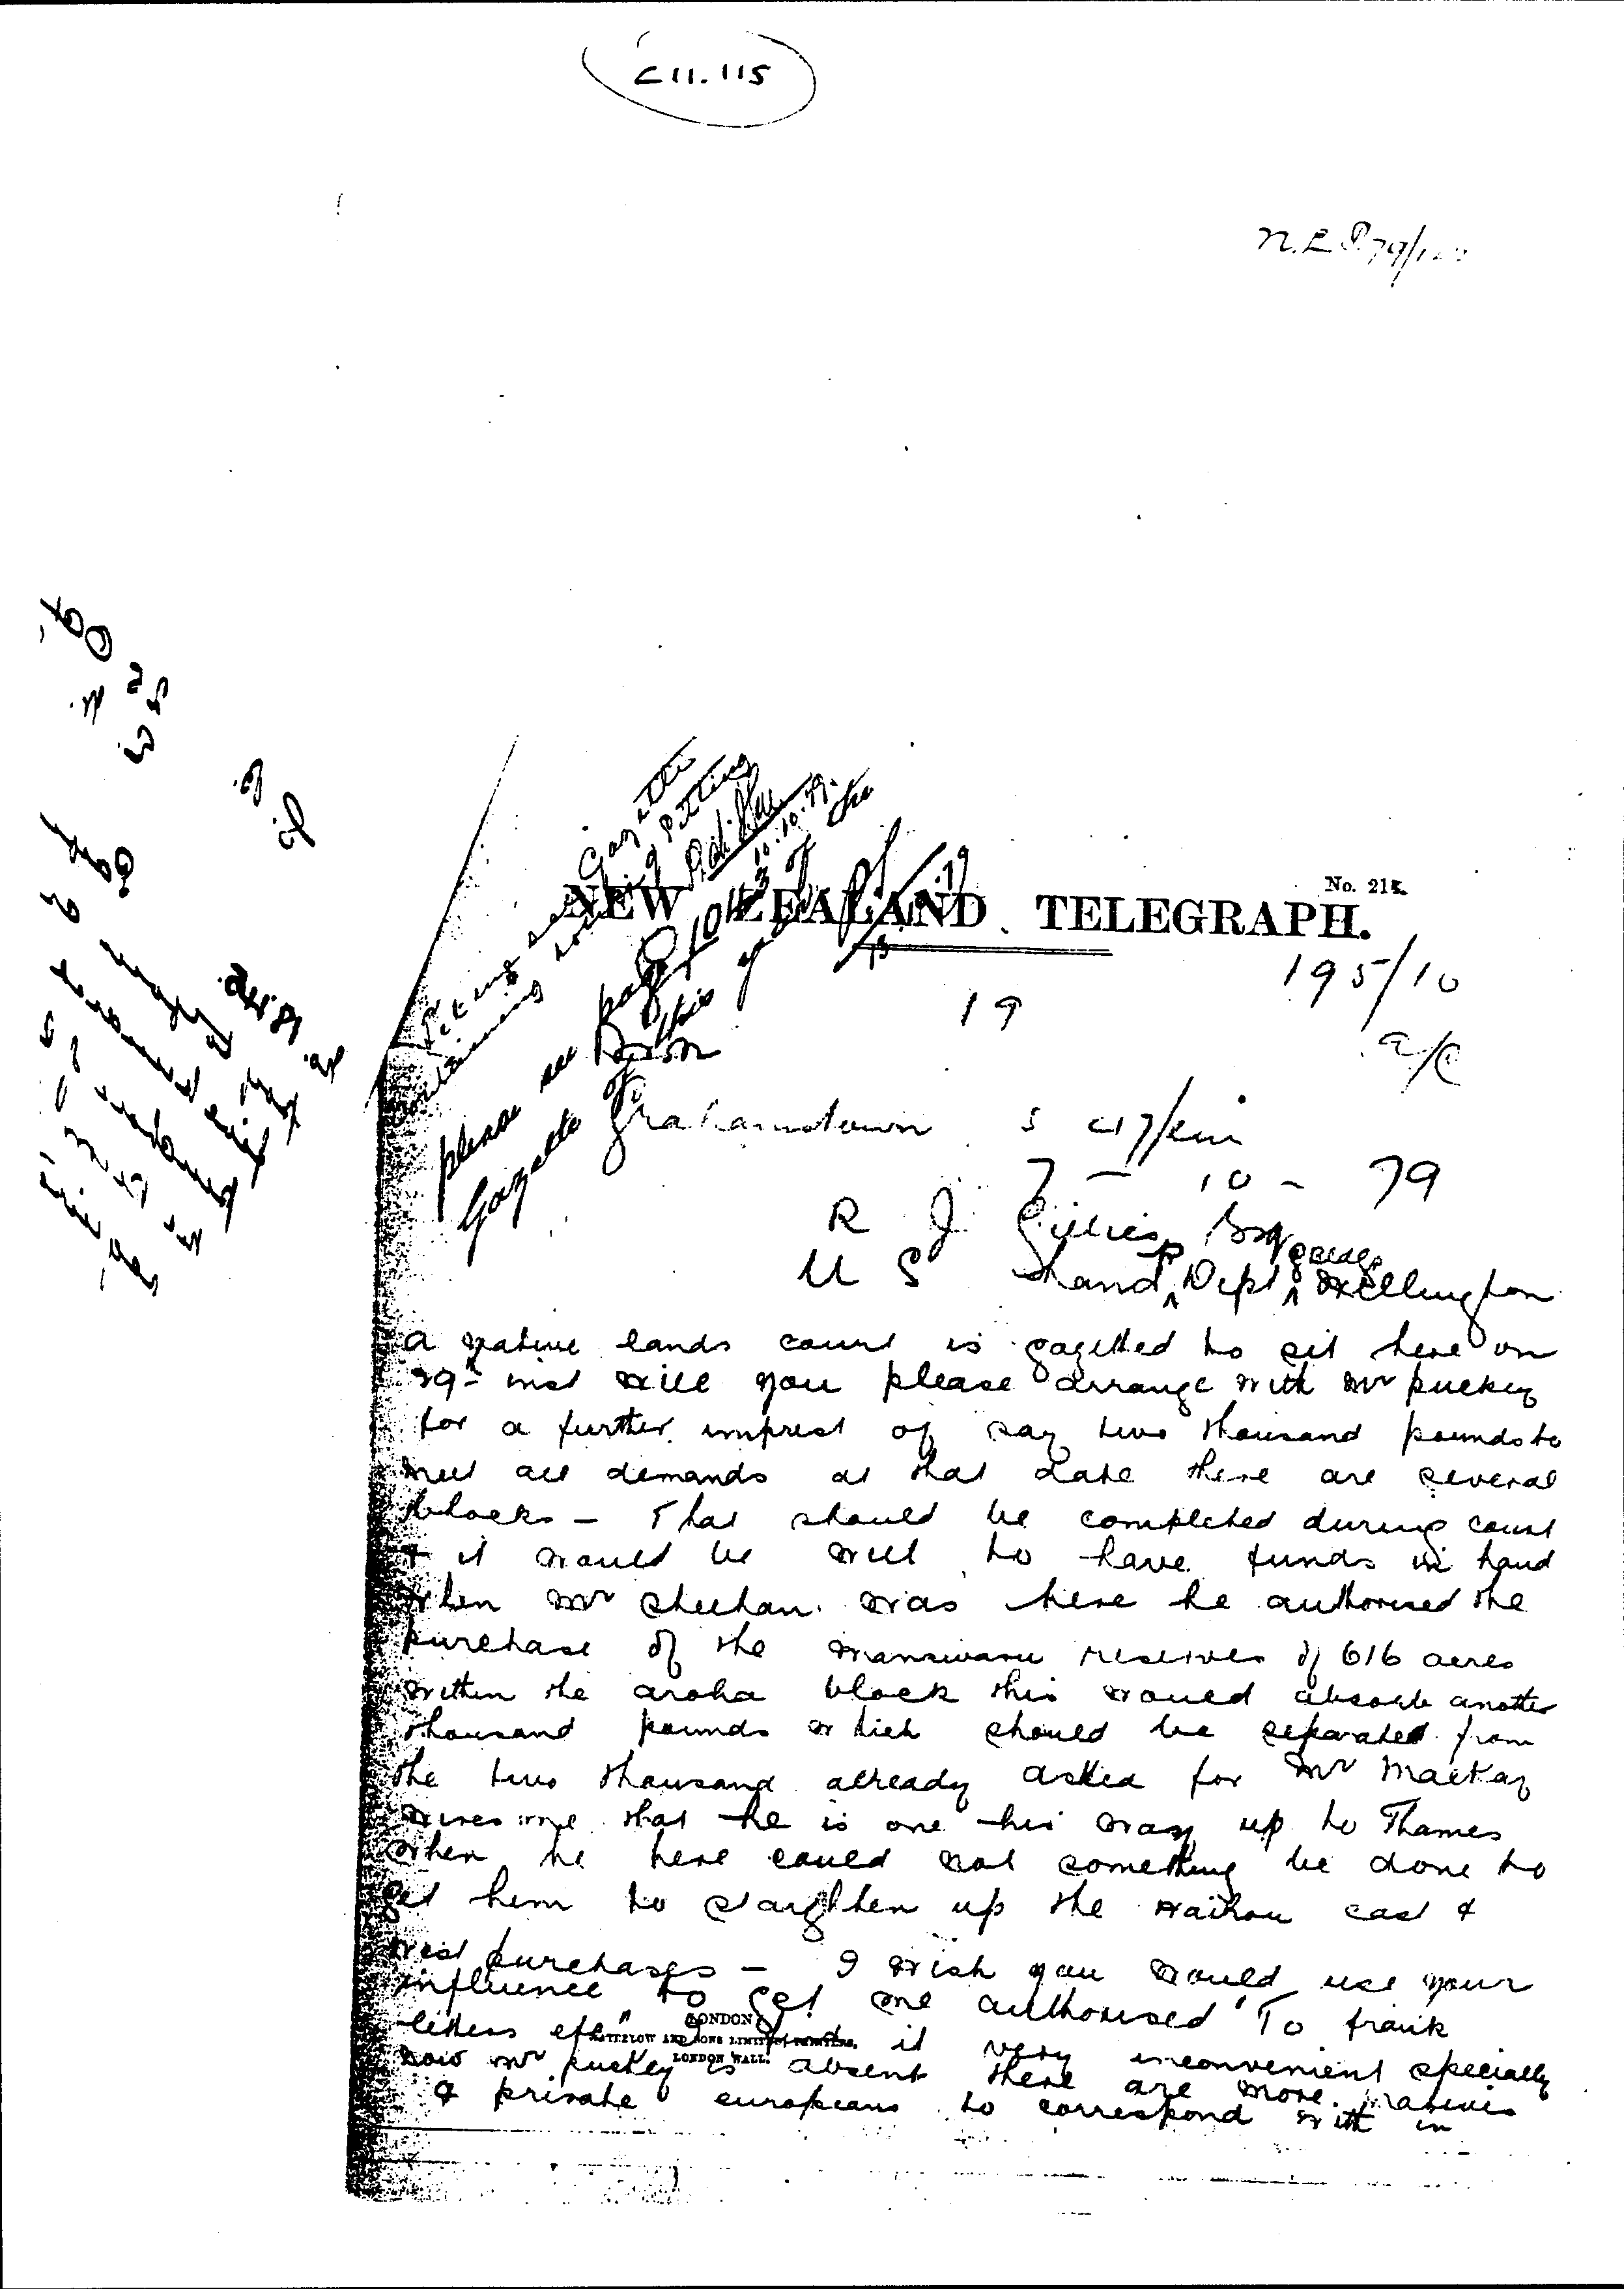 C11.115
N.L.P. 79/
Gazette
sitting
containing
please see page 1043 of the
Gazette of this year
10.10.79.
NEW ZEALAND TELEGRAPH.
No. 21
195/10
19
a/c
Grahamstown
7 - 10 - 79
R J Gillies Esq
U S Land P Dept Wellington
a native lands court is gazetted to sit here on
29th inst will you please arrange with Mr puckey
for a further imprest of say two thousand pounds to
meet all demands at that date there are several
blocks - That should be completed during court
& it would be well to have funds in hand
when Mr sheehan was here he authorised the
purchase of the manawaru reserves of 616 acres
within the aroha block this would absorb another
thousand pounds which should be separated from
the two thousand already asked for Mr Mackay
wires me that he is one his way up to Thames
when he here could not something be done to
get him to staighten up the waihou east &
west purchases - I wish you would use your
influence to get me authorised "To frank
letters etc" I find it very inconvenient specially
now Mr puckey is absent there are more natives
& private europeans to correspond with in
LONDON
WATERLOW AND SONS LIMITED, PRINTERS,
LONDON WALL.